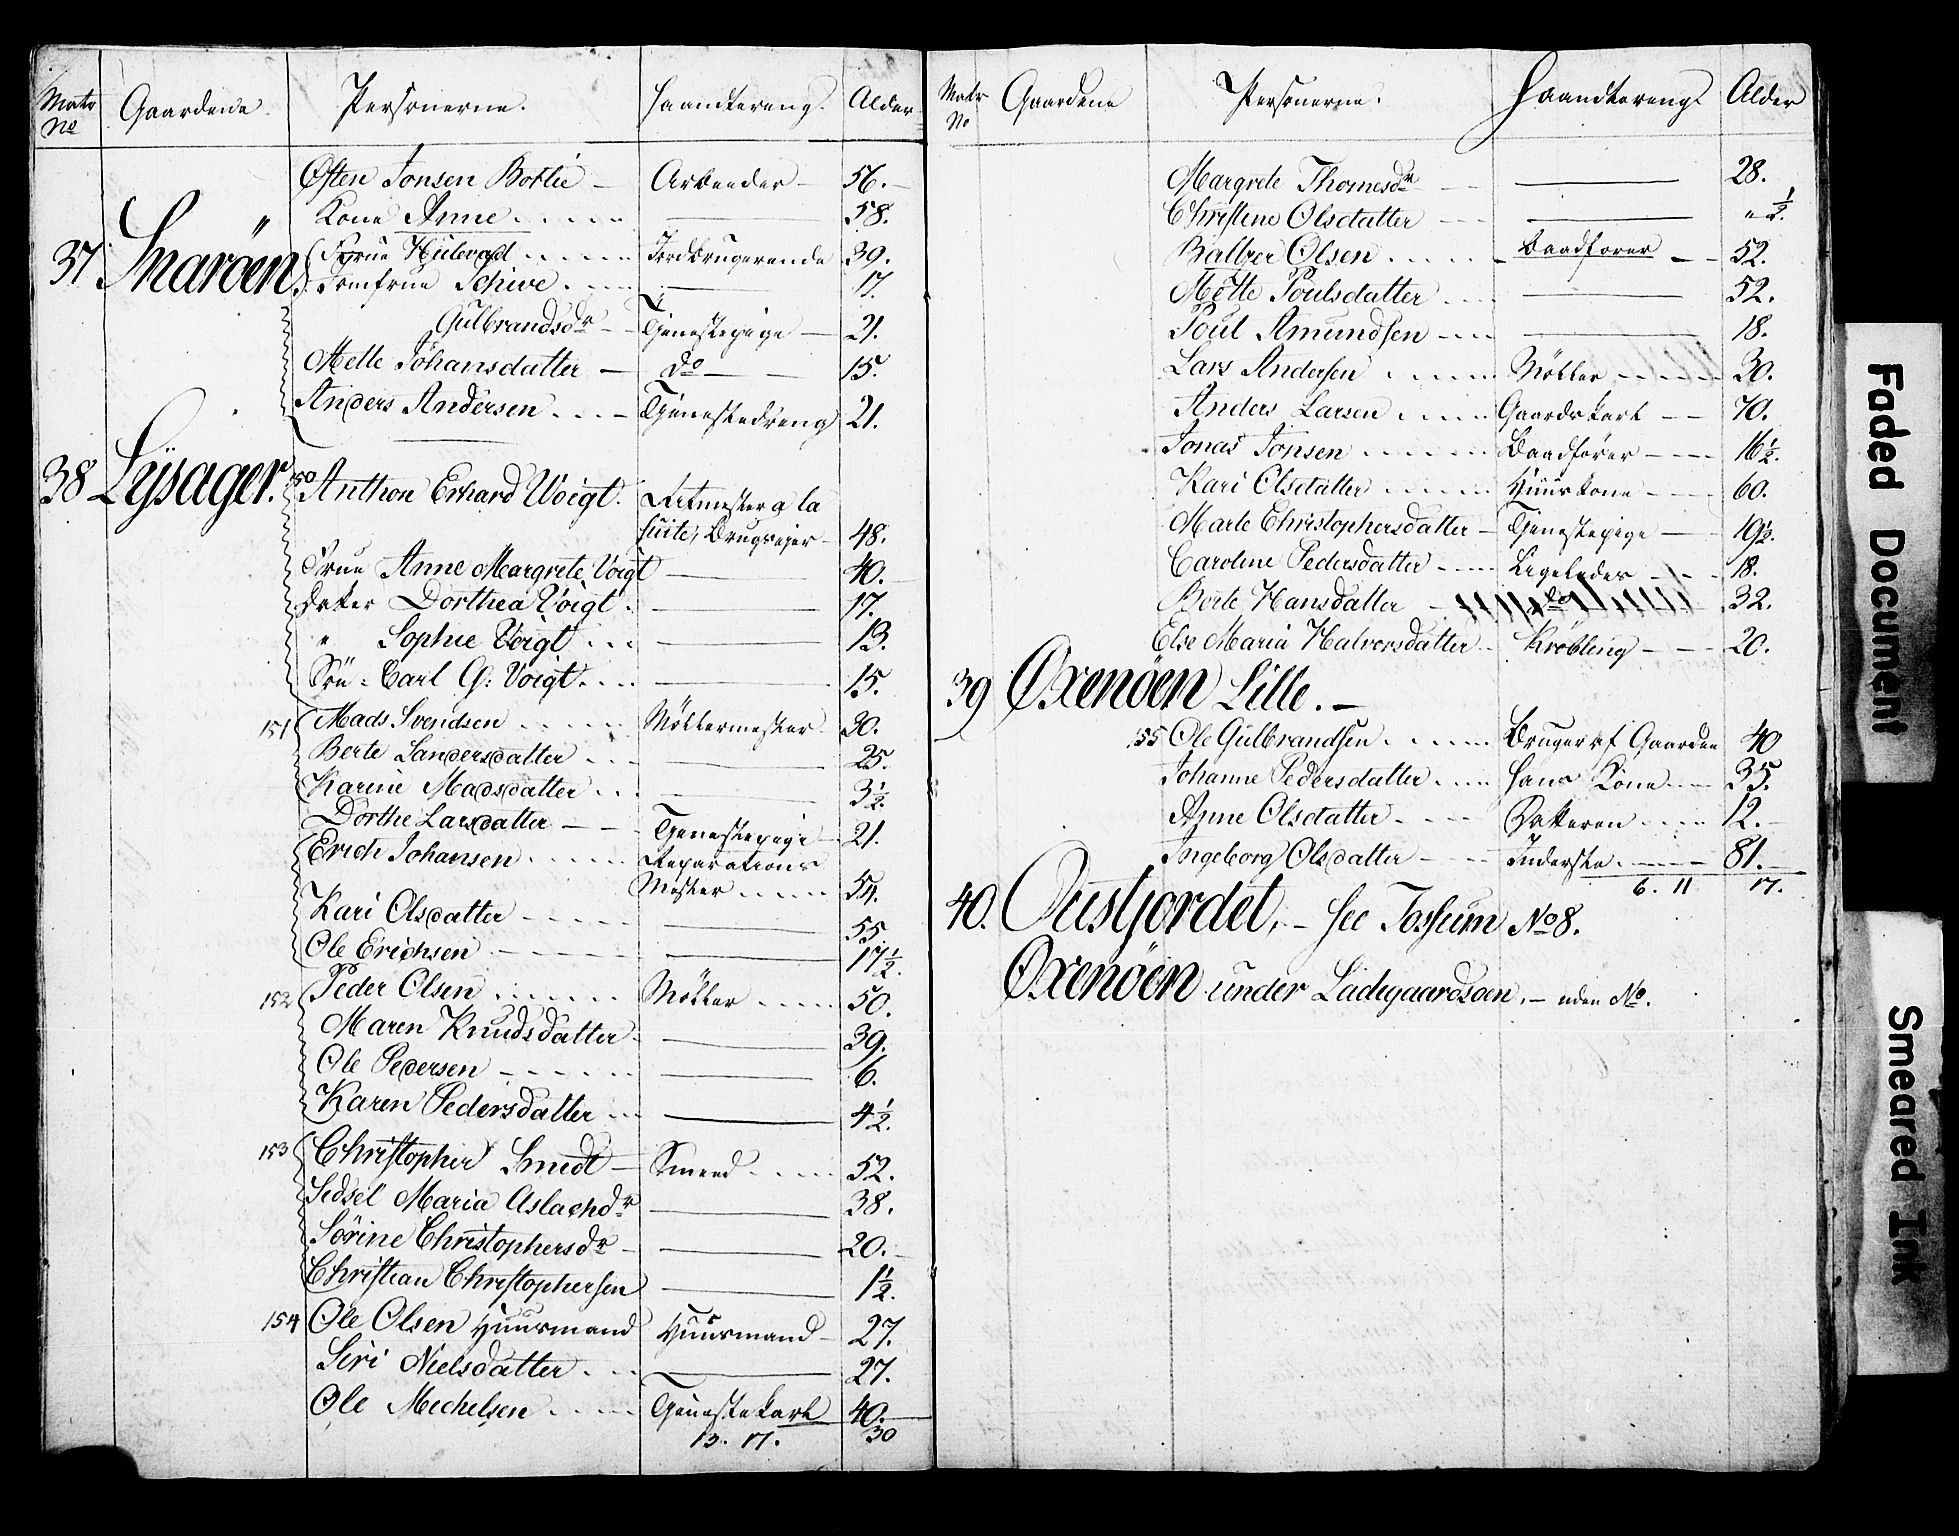 Matr No Gaardene Personerne. Haandtering. Alder
Östen Jonsen — Arbeider — 56.
Kone Anne — 58.
37 Snaröen Frue — Jordbrugerende 39.
Jomfrue Schive — 17.
Gulbrandsdr — Tjenestepige — 21.
Mette Johansdatter — do — 15.
Anders Andersen — Tjenestedreng 21.
38 Lysager. 150 Anthon Erhard Voigt. Ritmester a la
suite, Brugsejer — 48.
Frue Anne Margrete Voigt — 40.
Datter Dorthea Voigt — 17.
" Sophie Voigt — 13.
Sön - Carl G: Voigt — 15.
151 Mads Svendsen — Möllermester — 30.
Berte Sandersdatter — 25.
Karine Madsdatter — 3 1/2.
Dorthe Larsdatter — Tjenestepige — 21.
Erich Johansen — Reparations
Mester — 54.
Kari Olsdatter — 55.
Ole Erichsen — 17 1/2.
152 Peder Olsen — Möller — 50.
Maren Knudsdatter — 39.
Ole Pedersen — 6.
Karen Pedersdatter — 4 1/2.
153 Christopher Smedt — Smed — 52.
Sidsel Maria Aslachdr — 38.
Sörine Christophersdr — 20.
Christian Christophersen — 1 1/2.
154 Ole Olsen Huusmand Huusmand — 27.
Siri Nielsdatter — 27.
Ole Michelsen — Tjenestekarl 40.
13. 17. 30
Matr No Gaardene Personerne. Haandtering. Alder
Margrete Thomesdr — 28.
Christine Olsdatter — " 1/2.
Baltzer Olsen — Baadförer — 52.
Mette Poulsdatter — 52.
Poul Amundsen — 18.
Lars Andersen — Möller — 30.
Anders Larsen — Gaardskarl — 70.
Jonas Jonsen — Baadförer — 16 1/2.
Kari Olsdatter — Huuskone — 60.
Marte Christophersdatter — Tjenestepige — 19 1/2.
Caroline Pedersdatter — Ligeledes — 18.
Berte Hansdatter — do — 32.
Else Maria Halvorsdatter — Kröbling — 20.
39 Oxenöen Lille. —
155 Ole Gulbrandsen — Bruger af Gaarden 40
Johanne Pedersdatter — Hans Kone — 35.
Anne Olsdatter — Datteren — 12.
Ingeborg Olsdatter — Inderste — 81.
6. 11 17.
40. Ousfjordet, — see Jossum No 8.
Oxenöen under Ladegaardsöen, — uden No.
Faded Document
Smeared Ink